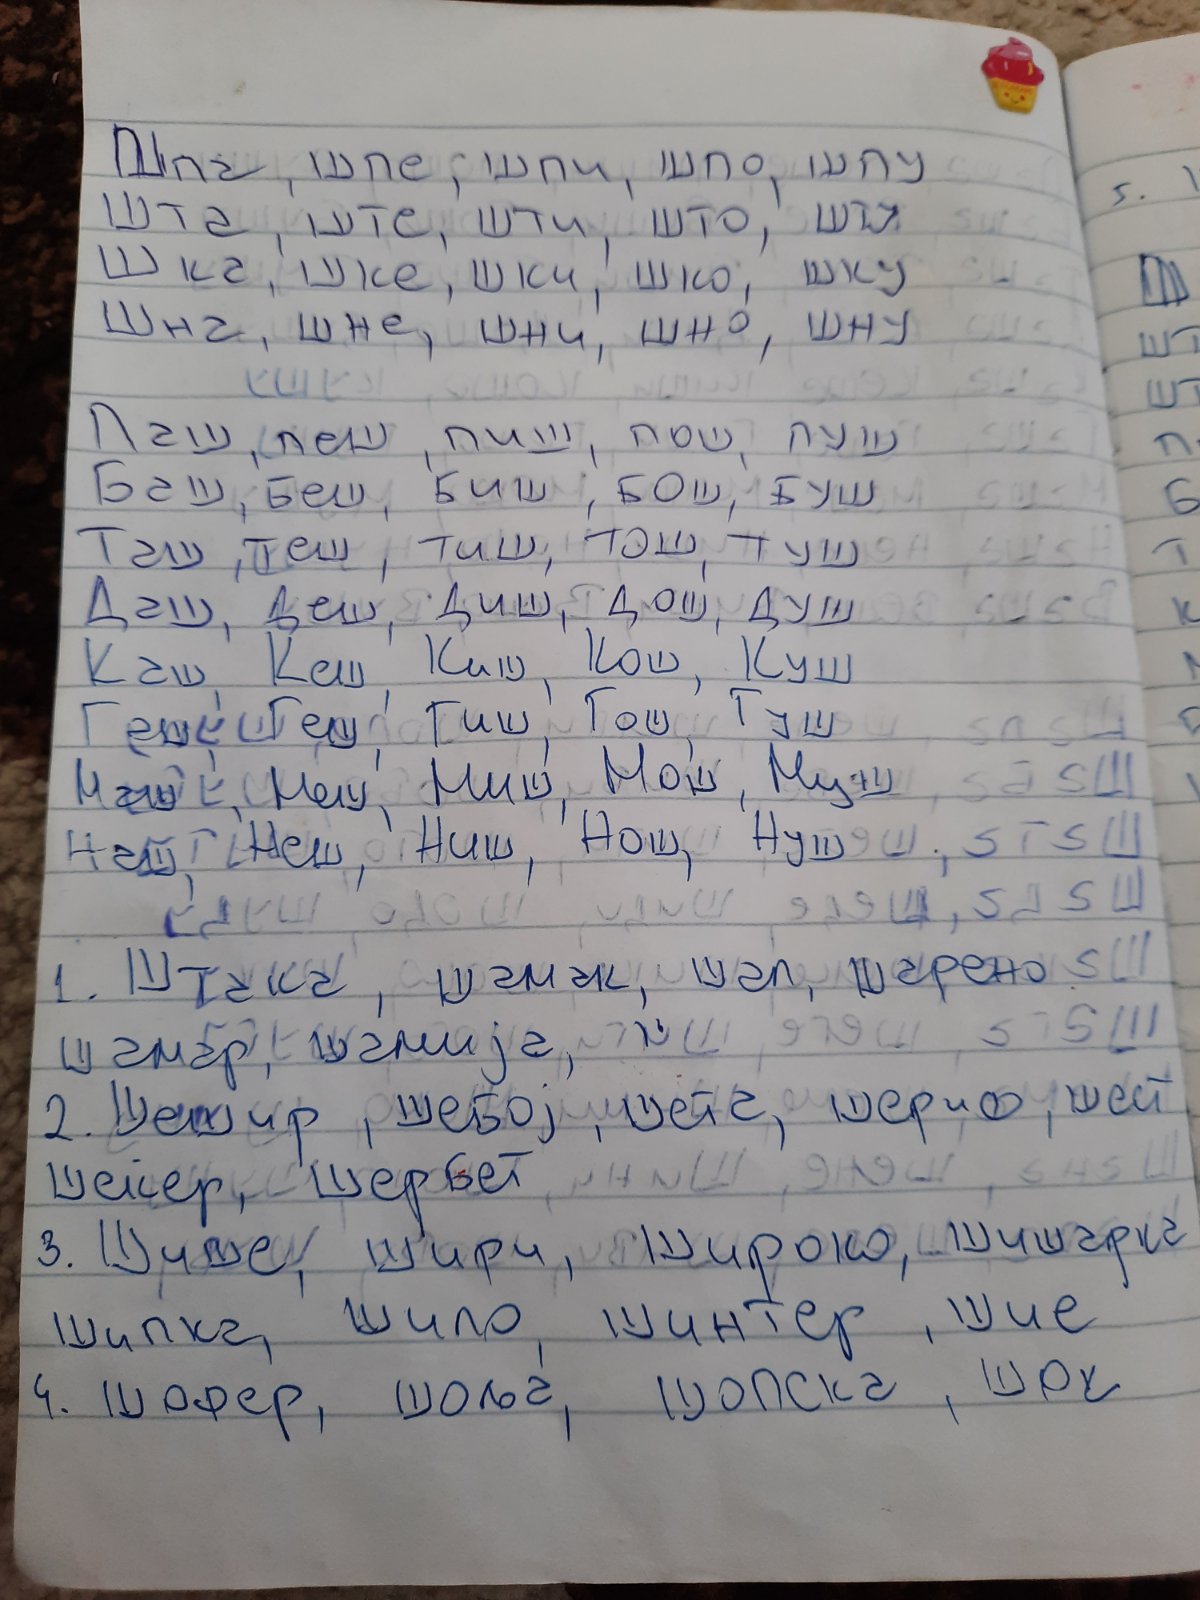 Шпа, шпе, шпи, шпо, шпу
Шта, ште, шти, што, шту
Шка, шке, шки, шко, шку
Шна, шне, шни, шно, шну
Паш, пеш, пиш, пош, пуш
Баш, беш, биш, бош, буш
Таш, теш, тиш, тош, туш
Даш, деш, диш, дош, душ
Каш, Кеш, Киш, Кош, Куш
Гаш, Геш, Гиш, Гош, Гуш
Маш, Меш, Миш, Мош, Муш
Наш, Неш, Ниш, Нош, Нуш
1. Штака, шамак, шал, шарено
шамар, шамија,
2. Шешир, шебој, шета, шериф, шеи
шеќер, шербет
3. Шише, шири, широко, шишарка
шипка, шило, шинтер, шие
4. шофер, шоља, шопска, шок
5.
Ш
шт
шт
П
Б
Т
К